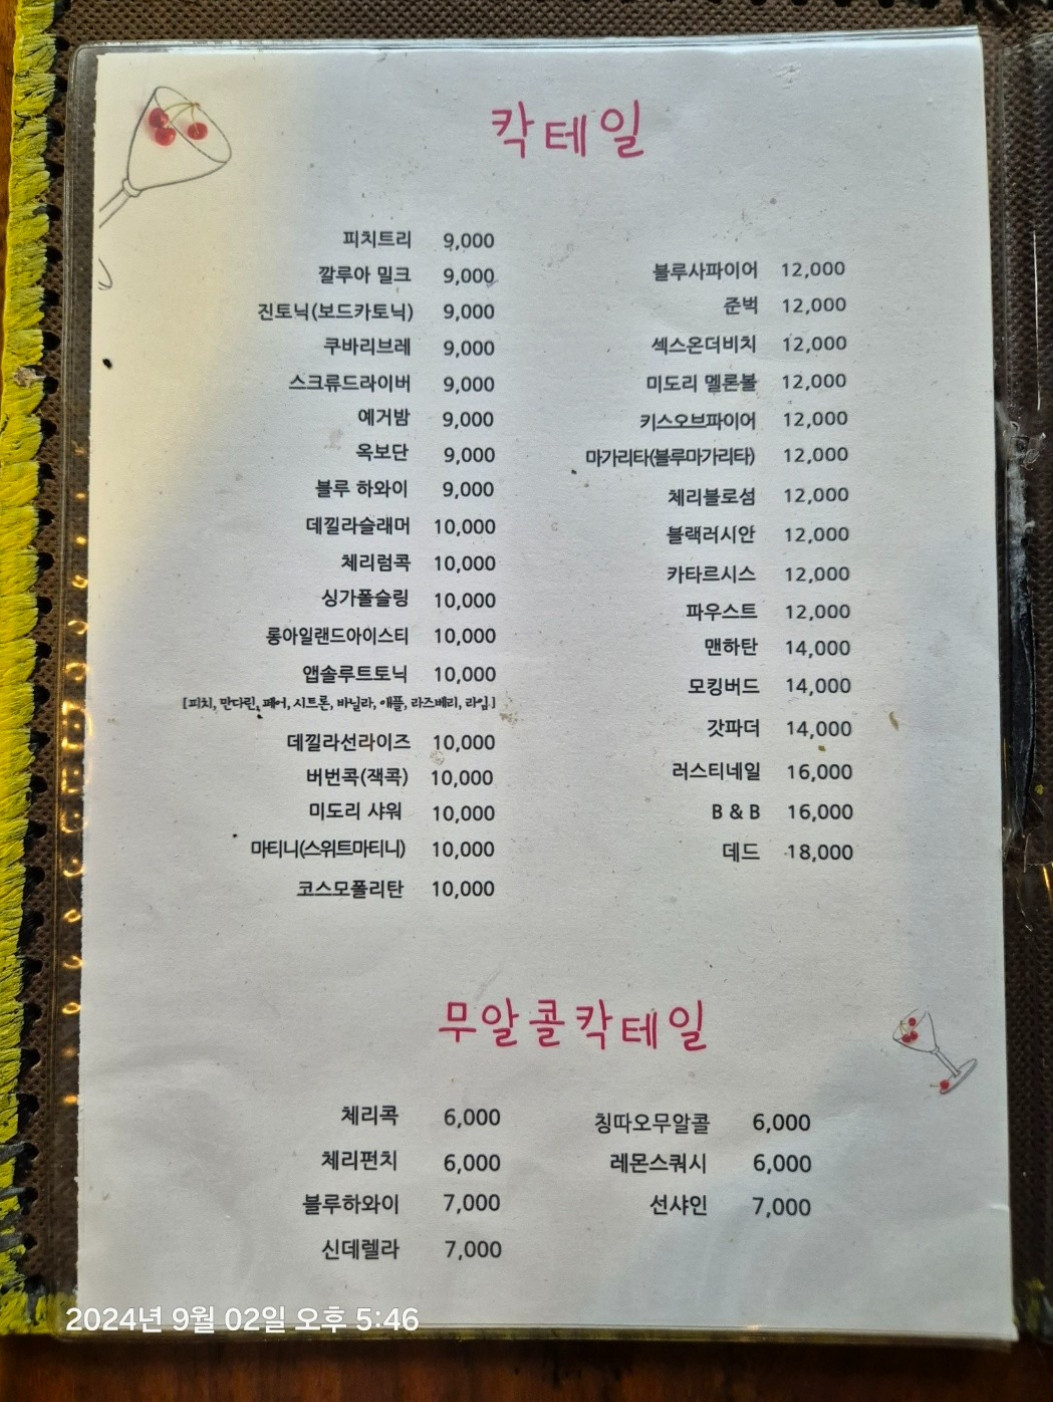 칵테일
피치트리 9,000
깔루아 밀크 9,000
진토닉(보드카토닉) 9,000
쿠바리브레 9,000
스크류드라이버 9,000
예거밤 9,000
옥보단 9,000
블루 하와이 9,000
데낄라슬래머 10,000
체리럼콕 10,000
싱가폴슬링 10,000
롱아일랜드아이스티 10,000
앱솔루트토닉 10,000
[피치, 만다린, 페어, 시트론, 바닐라, 애플, 라즈베리, 라임]
데낄라선라이즈 10,000
버번콕(잭콕) 10,000
미도리 샤워 10,000
마티니(스위트마티니) 10,000
코스모폴리탄 10,000
블루사파이어 12,000
준벅 12,000
섹스온더비치 12,000
미도리 멜론볼 12,000
키스오브파이어 12,000
마가리타(블루마가리타) 12,000
체리블로섬 12,000
블랙러시안 12,000
카타르시스 12,000
파우스트 12,000
맨하탄 14,000
모킹버드 14,000
갓파더 14,000
러스티네일 16,000
B & B 16,000
데드 18,000
무알콜칵테일
체리콕 6,000
체리펀치 6,000
블루하와이 7,000
신데렐라 7,000
칭따오무알콜 6,000
레몬스쿼시 6,000
선샤인 7,000
2024년 9월 02일 오후 5:46